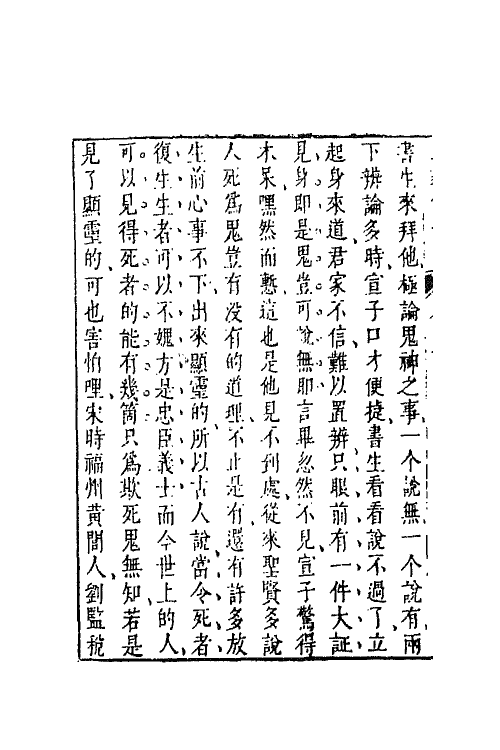 書生來拜他極論鬼神之事一个說無一个說有兩
下辨論多時宣子口才便捷書生看看說不過了立
起身來道君家不信難以置辨只眼前有一件大証
見身即是鬼豈可說無即言畢忽然不見宣子驚得
木呆嘿然而慙這也是他見不到處從來聖賢多說
人死爲鬼豈有没有的道理不止是有還有許多放
生前心事不下出來顯𩆜的所以古人說當令死者
復生生者可以不媿方是忠臣義士而今世上的人
可以見得死者的能有幾箇只爲欺死鬼無知若是
見了顯𩆜的可也害怕哩宋時福州黃間人劉監稅